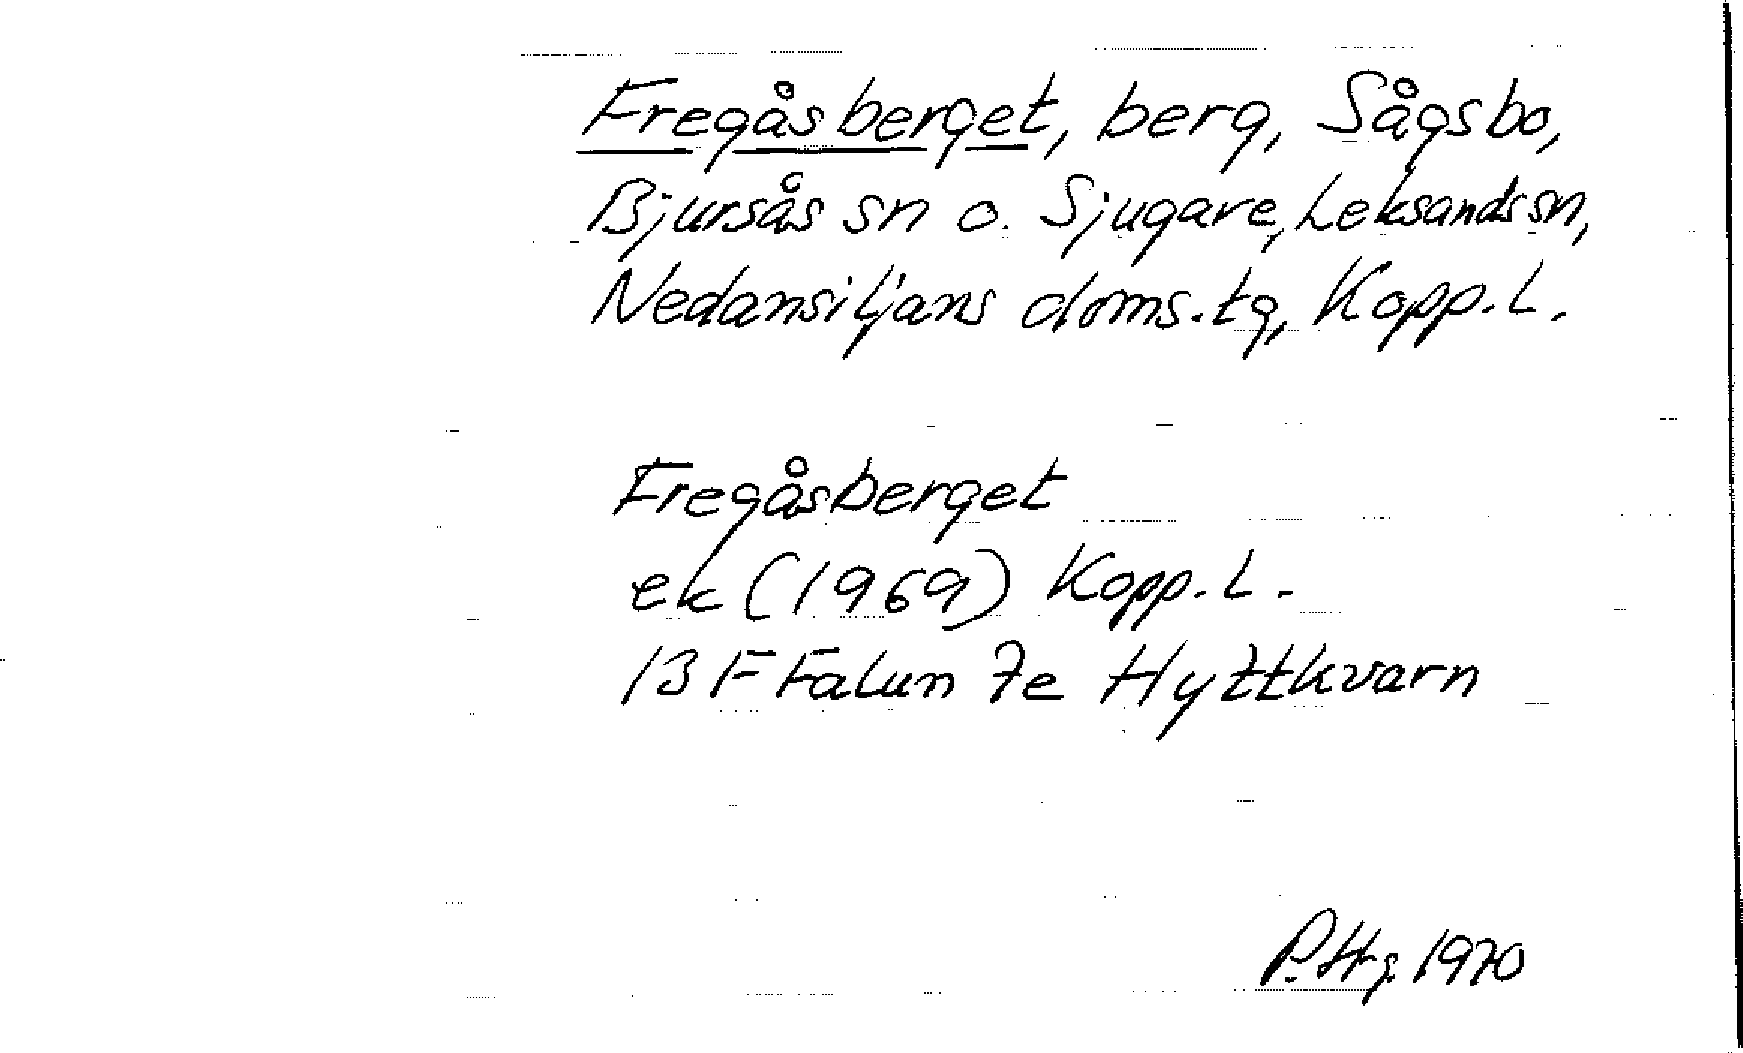 Fregåsberget, berg, Sågsbo,
Bjursås sn o. Sjugare, Leksands sn,
Nedansiljans doms.tg, Kopp. L.
Fregåsberget
ek (1969) Kopp. L.
13 F Falun 7e Hyttkvarn
P. Hg. 1970